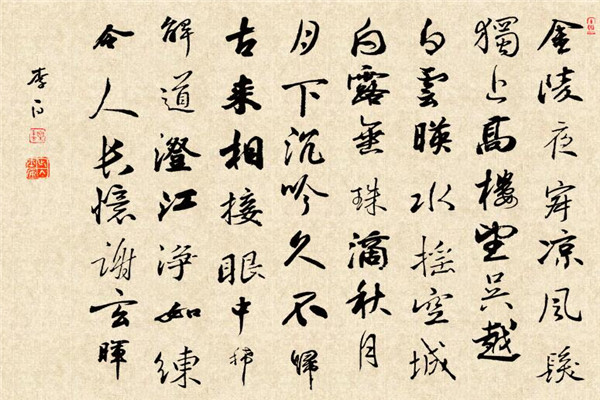 金陵夜寂凉风髮
獨上高樓望吴越
白雲暎水摇空城
白露垂珠滴秋月
月下沉吟久不歸
古来相接眼中稀
解道澄江浄如練
令人长憶謝玄暉
李白